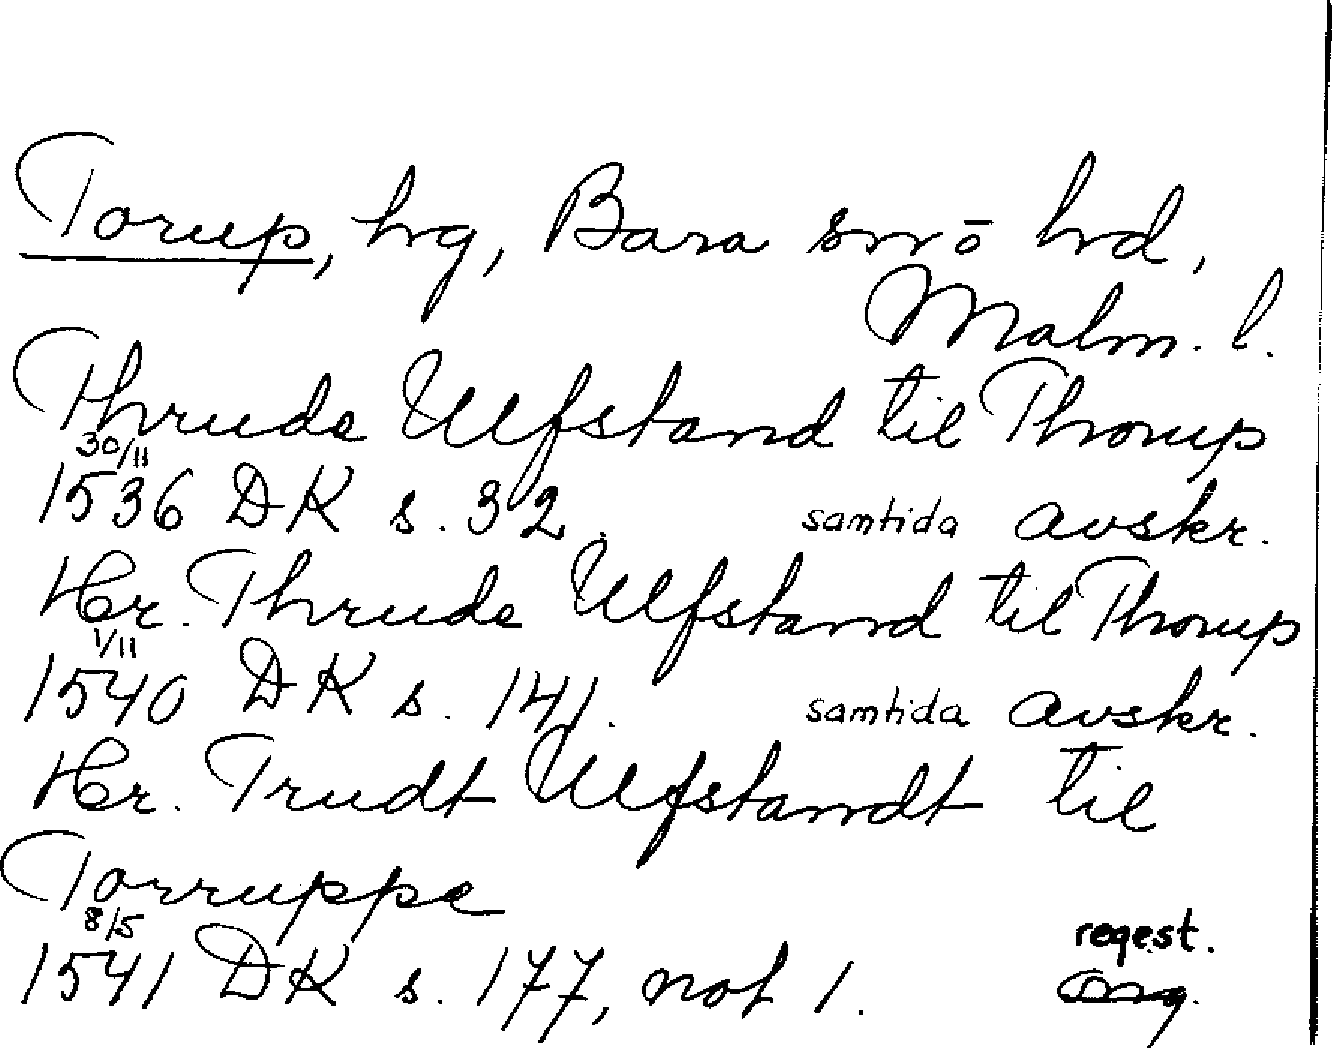 Torup, hrg, Bara snö hrd,
Malm. l.
Thrude Ulfstand til Thorup
30/11
1536 DK s. 32. samtida avskr.
Her. Thrude Ulfstand til Thorup
1/11
1540 DK s. 141. samtida avskr.
Her. Trudt Ulfstandt til
Torruppe
8/5 regest.
1541 DK s. 177, not 1.